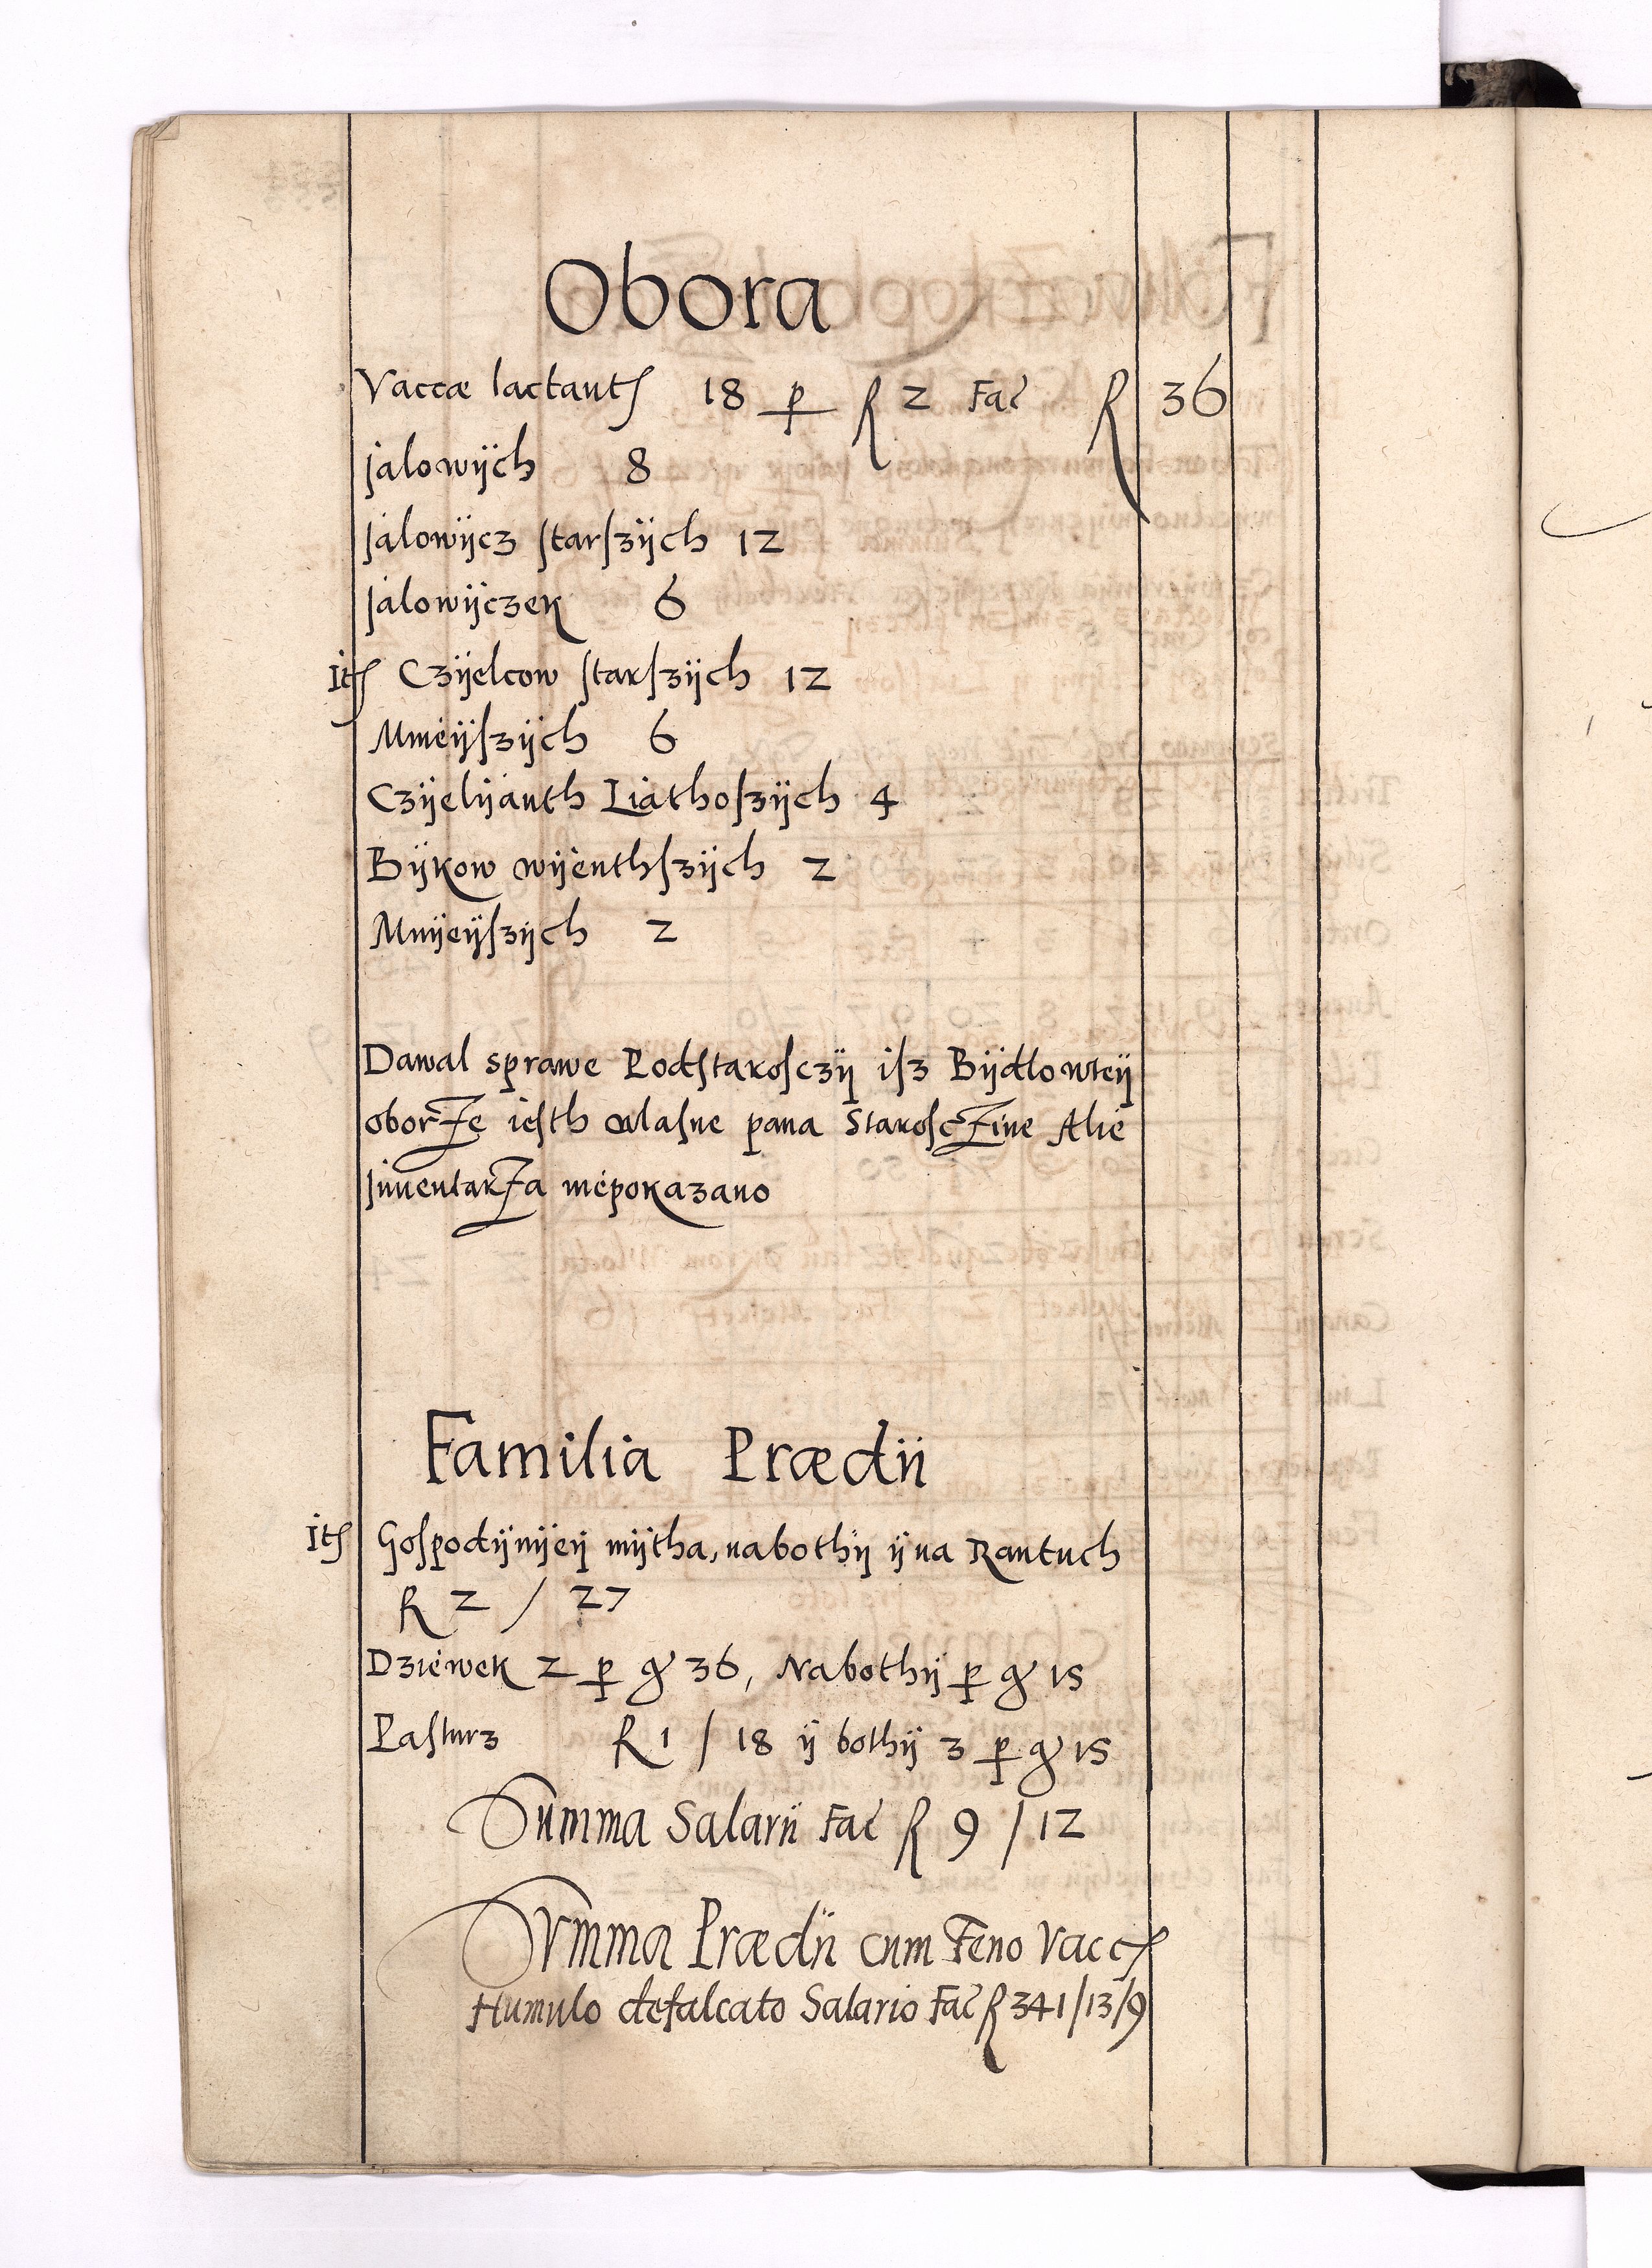 Obora
Vaccæ lactantes 18 p R 2 Fac R 36
jalowÿch 8
jalowÿcz starszÿch 12
jalowÿczek 6
Its Czÿelcow starszÿch 12
Mnieÿszÿch 6
Czÿelÿanth Liathoszÿch 4
Bÿkow wÿenthszÿch 2
Mnÿeÿszÿch 2
Dawal sprawe Podstarosczÿ isz Bÿdlo wteÿ
oborze iesth wlasne pana Starosczine Alie
jnuentarza niepokazano
Familia Prædii
Its Gospodÿnÿeÿ mÿtha, nabothÿ ÿ na Rantuch
R 2 / 27
Dziewek 2 p gr 36, Nabothÿ p gr 15
Pasturz R 1 / 18 ÿ bothÿ 3 p gr 15
Summa Salarii Fac R 9 / 12
Summa Prædii cum Feno Vaccis
Humulo defalcato Salario Fac R 341/13/9